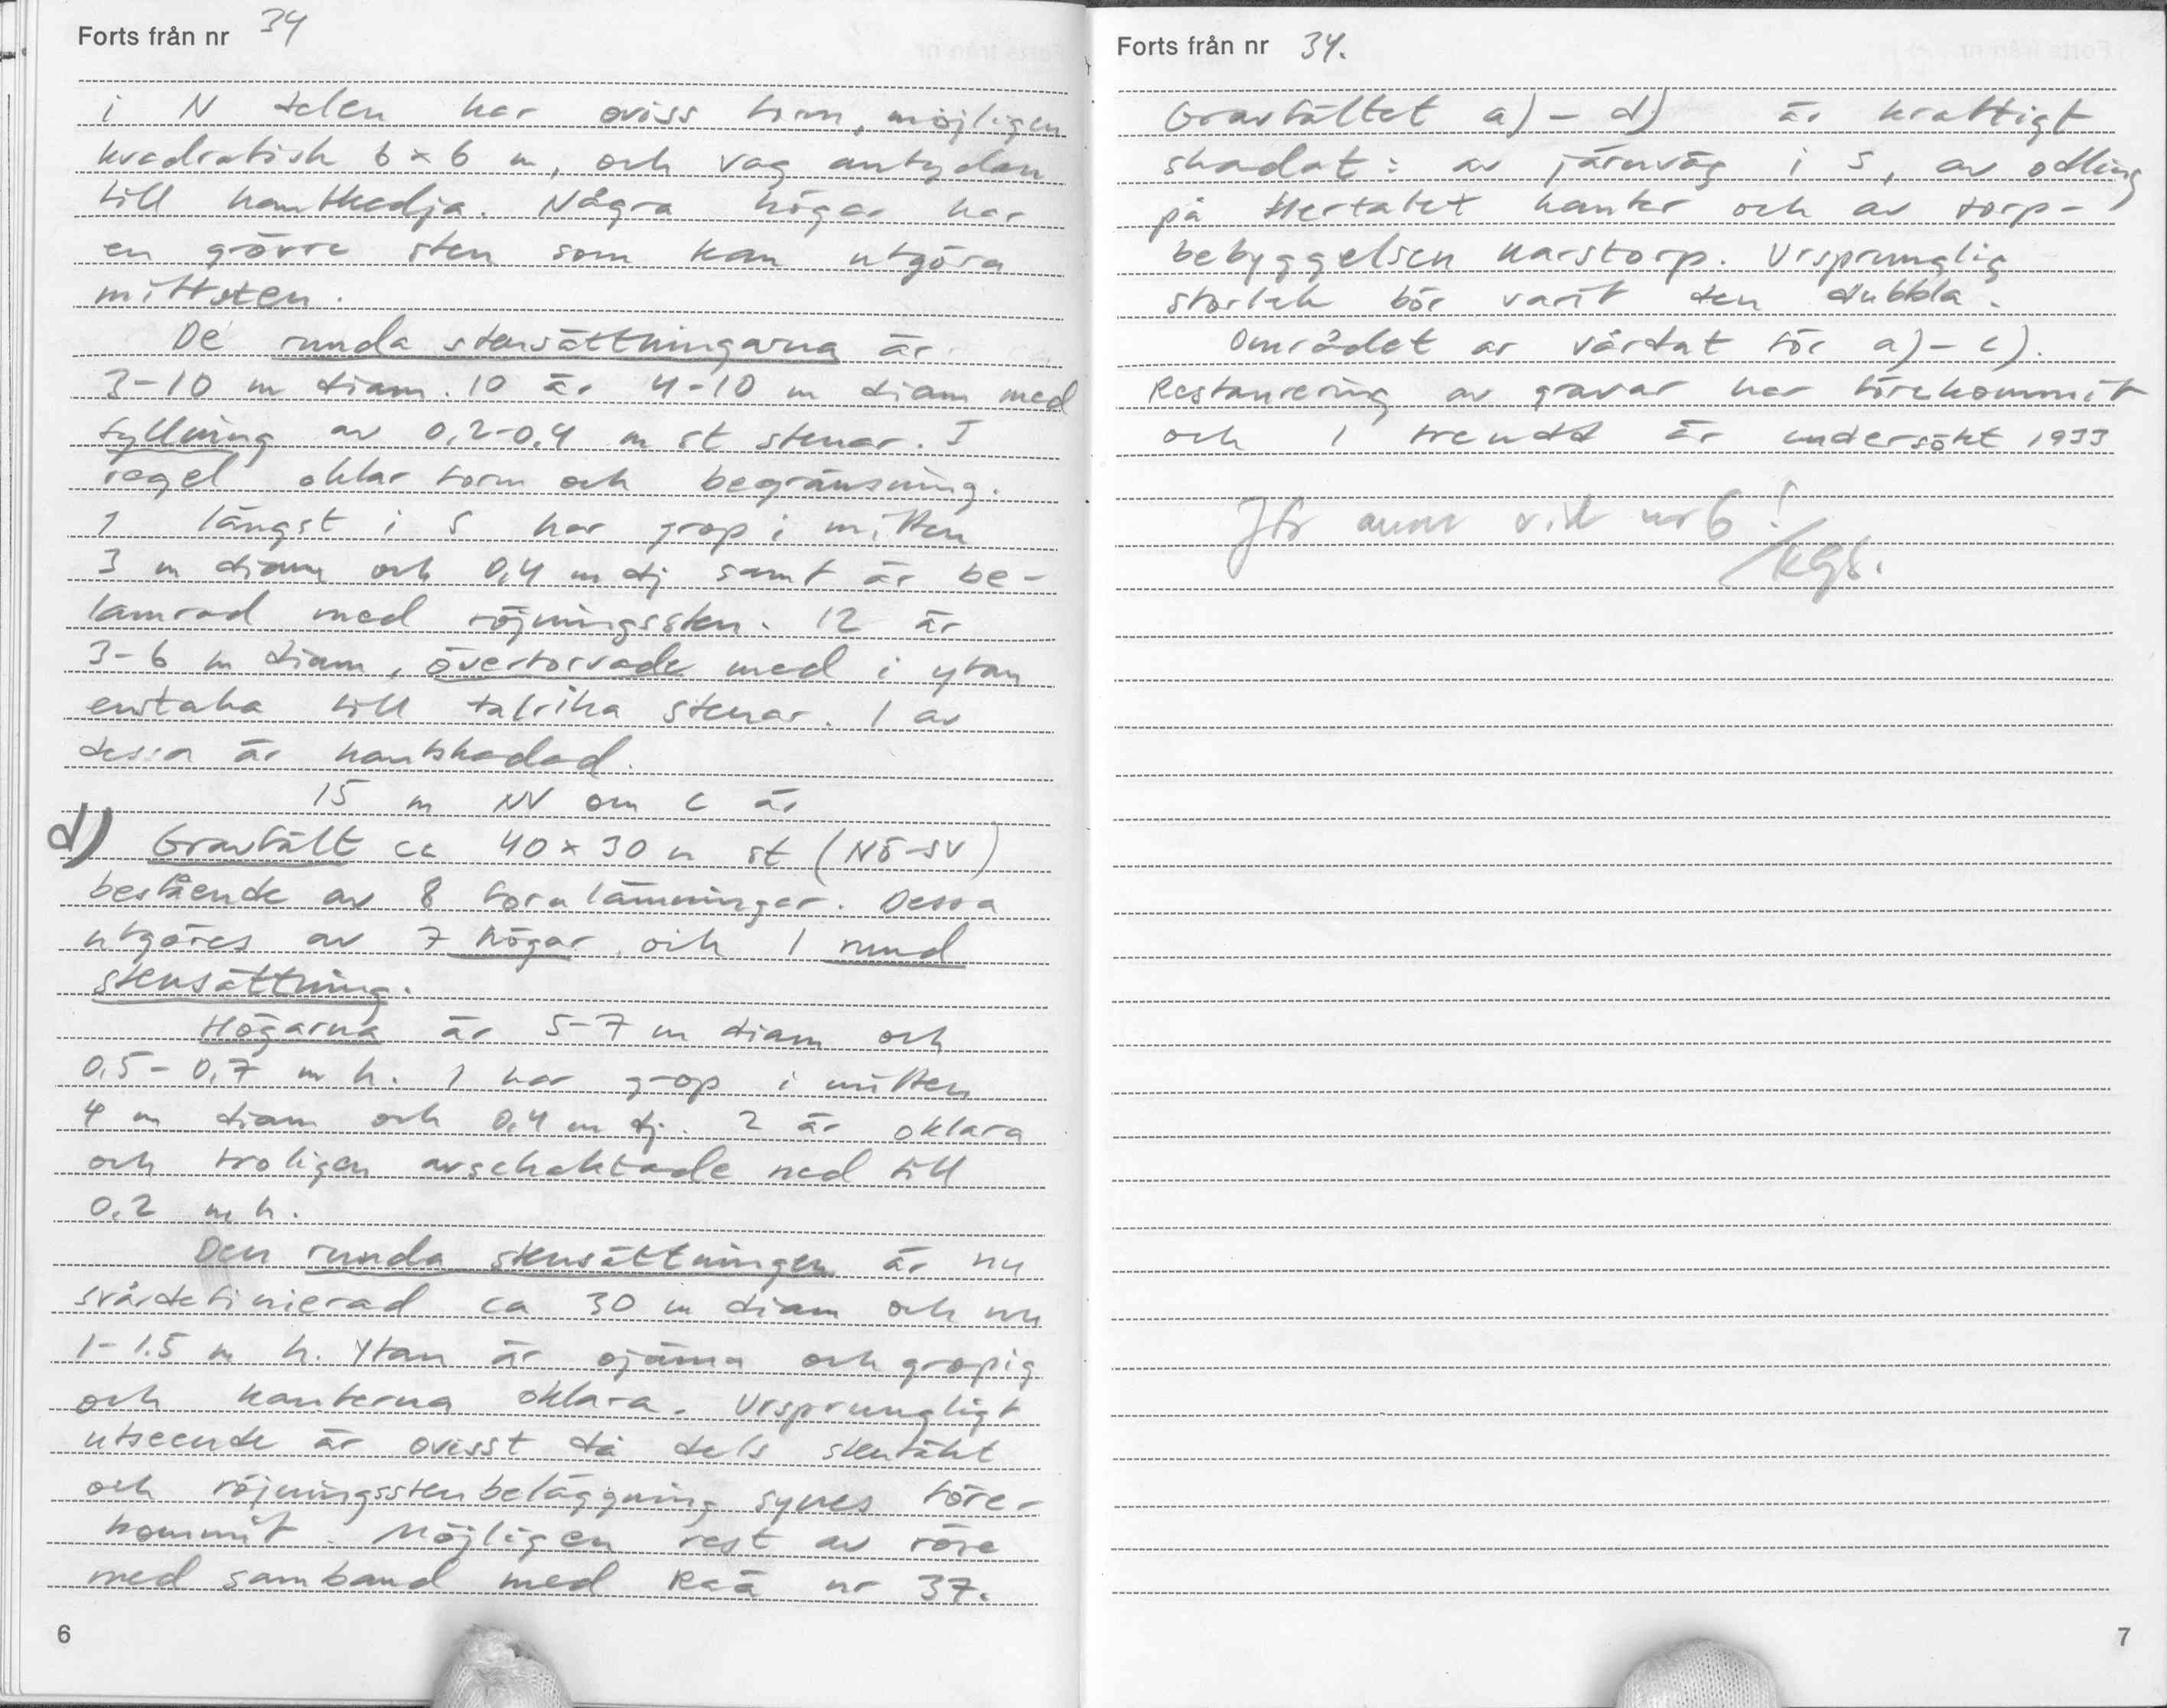 Forts från nr 34
i N delen har oviss form, möjligen
kvadratisk 6x6 m, och vag antydan
till kantkedja. Några högar har
en större sten som kan utgöra
mittsten.
De runda stensättningarna är
3-10 m diam. 10 är 4-10 m diam med
fyllning av 0,2-0,4 m st stenar. I
regel oklar form och begränsning.
1 längst i S har grop i mitten
3 m diam och 0,4 m dj samt är be-
lamrad med röjningssten. 12 är
3-6 m diam, övertorvade med i ytan
enstaka till talrika stenar. 1 av
dessa är kantskadad.
15 m NV om c är
d) Gravfält ca 40x30 m st (NÖ-SV)
bestående av 8 fornlämningar. Dessa
utgöres av 7 högar och 1 rund
stensättning.
Högarna är 5-7 m diam och
0,5-0,7 m h. 1 har grop i mitten
4 m diam och 0,4 m dj. 2 är oklara
och troligen avschaktade ned till
0,2 m h.
Den runda stensättningen är nu
svårdefinierad ca 30 m diam och nu
1-1.5 m h. Ytan är ojämn och gropig
och kanterna oklara. Ursprungligt
utseende är ovisst då dels stentäkt
och röjningsstenbeläggning synes före-
kommit. Möjligen rest av röse
med samband med Raä nr 37.
6
Forts från nr 34.
Gravfältet a) - d) är kraftigt
skadat: av järnväg i S, av odling
på flertalet kanter och av torp-
bebyggelsen Karstorp. Ursprunglig
storlek bör varit den dubbla.
Området är vårdat för a) - c).
Restaurering av gravar har förekommit
och 1 treudd är undersökt 1933
Jfr anm vid nr 6!
/KGS.
7